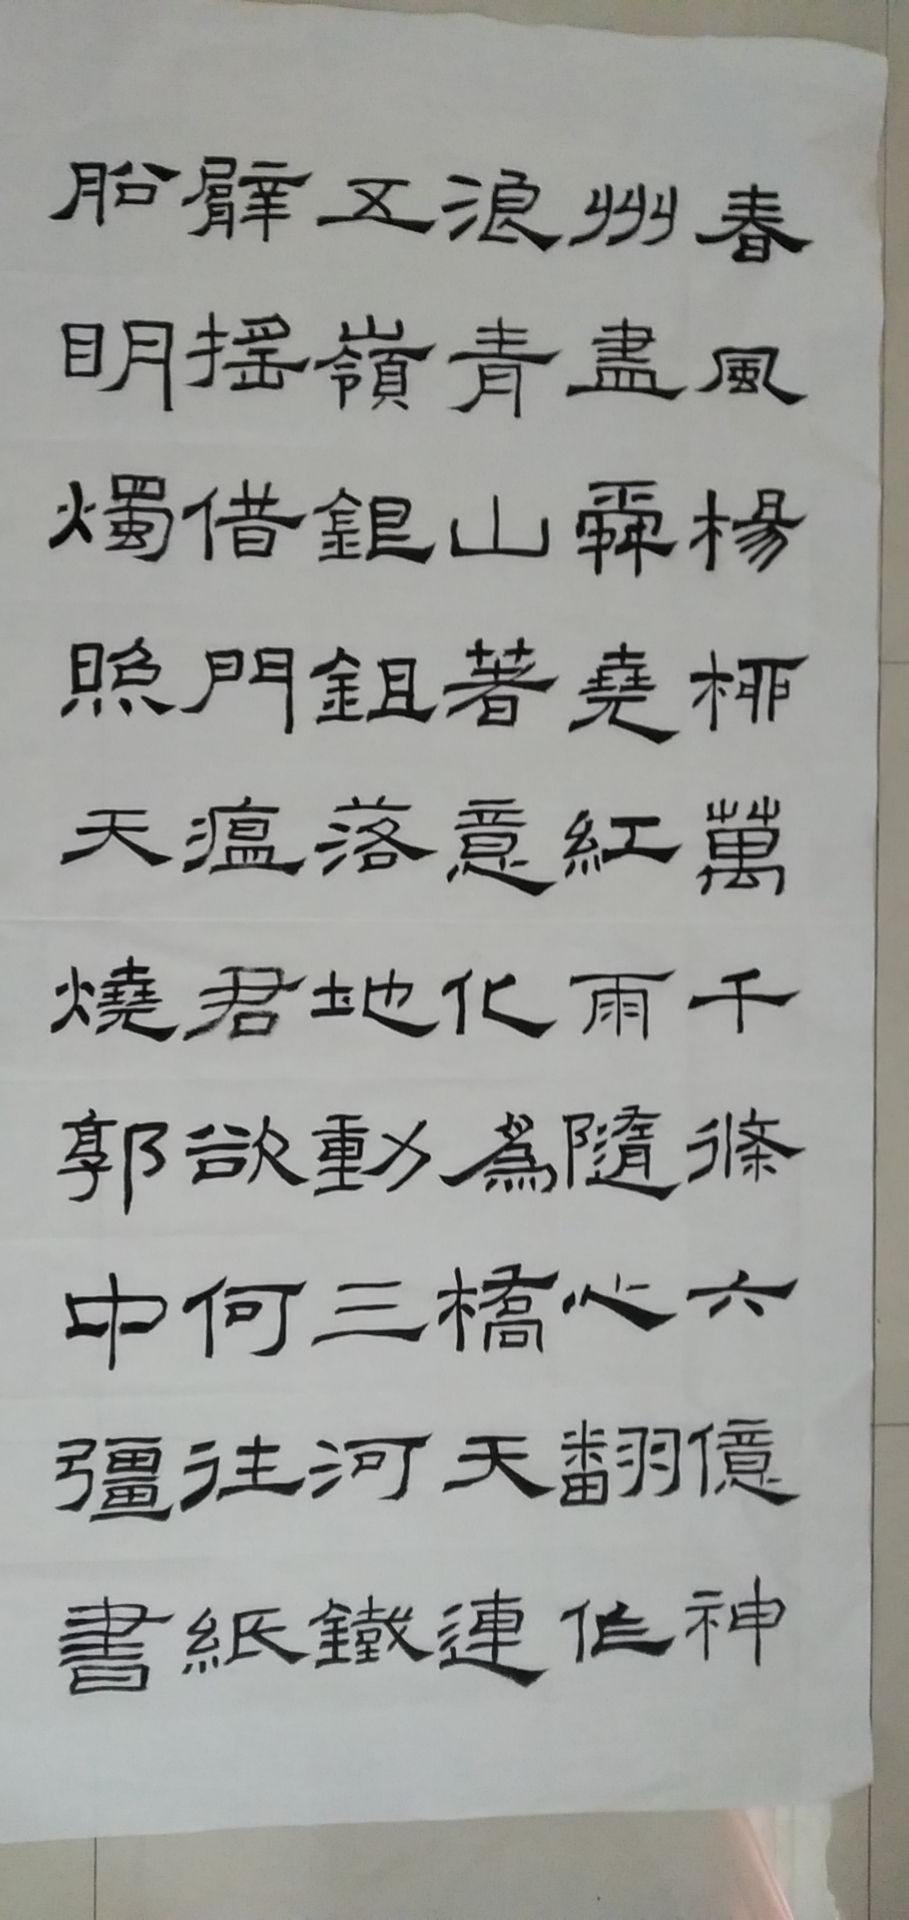 春風楊柳萬千條六億神
州盡舜堯紅雨隨心翻作
浪青山著意化爲橋天連
五嶺銀鉏落地動三河鐵
臂搖借門瘟君欲何往紙
船明燭照天燒郭中彊書